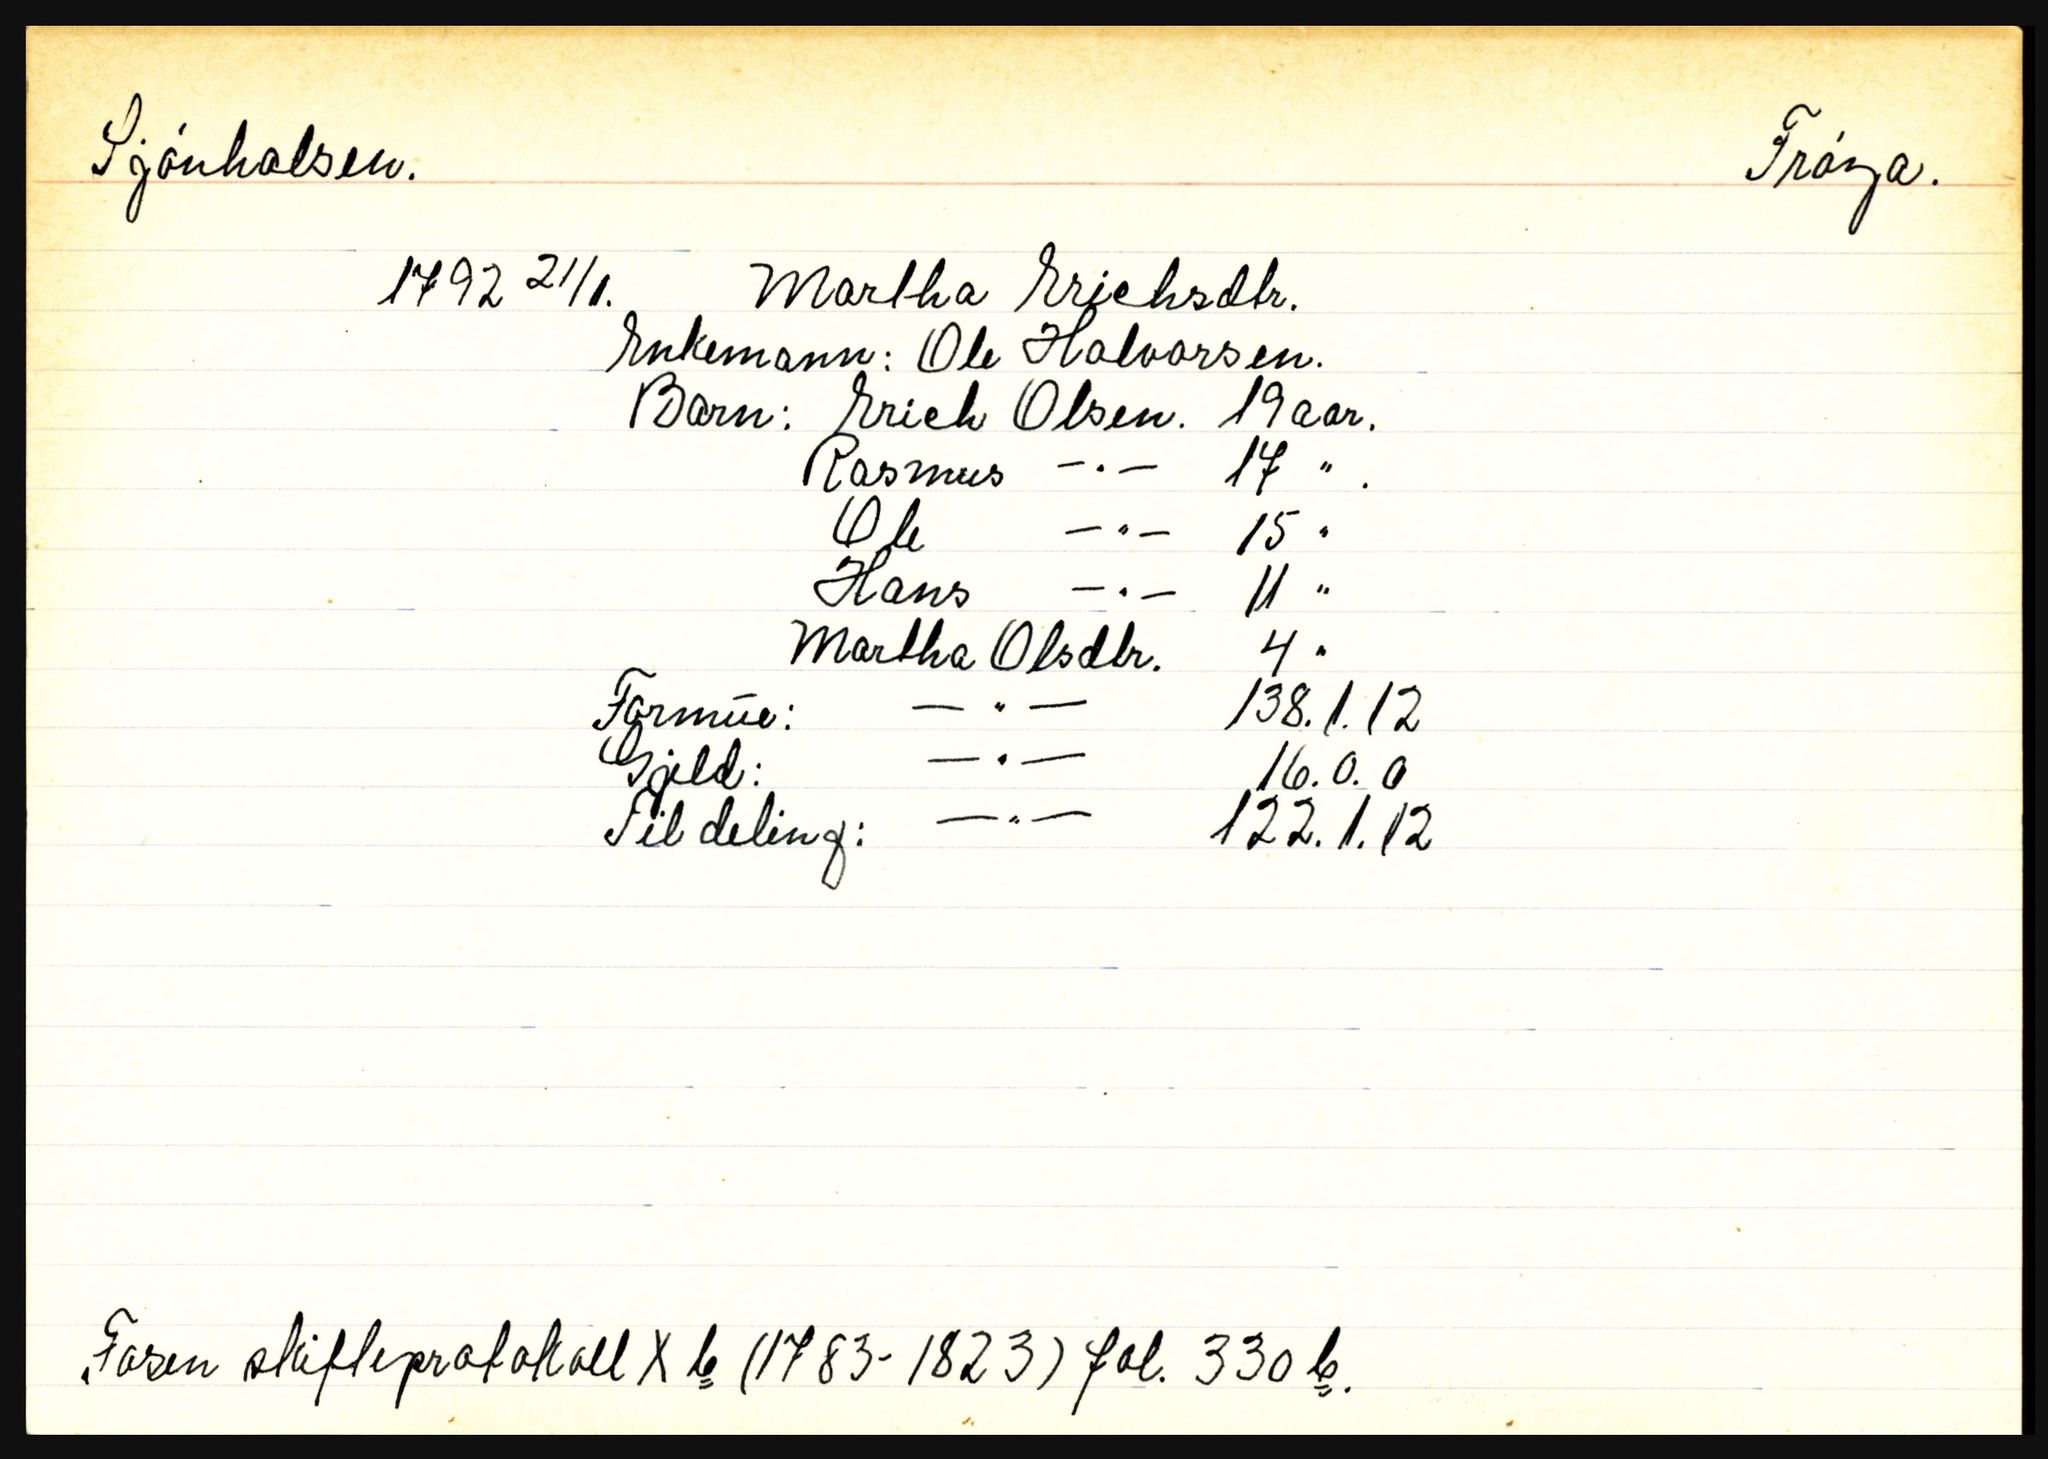 Sjónhalsen. Fróya.
1792 21/1. Martha Erichsdtr.
Enkemann: Ole Halvorsen.
Barn: Erich Olsen. 19 aar.
Rasmus —"— 17 ".
Ole —"— 15 "
Hans —"— 11 "
Martha Olsdtr. 4 "
Formúe: —"— 138.1.12
Gjeld: —"— 16.0.0
Til deling: —"— 122.1.12
Fosen skifteprotokoll X b (1783-1823) fol. 330 b.